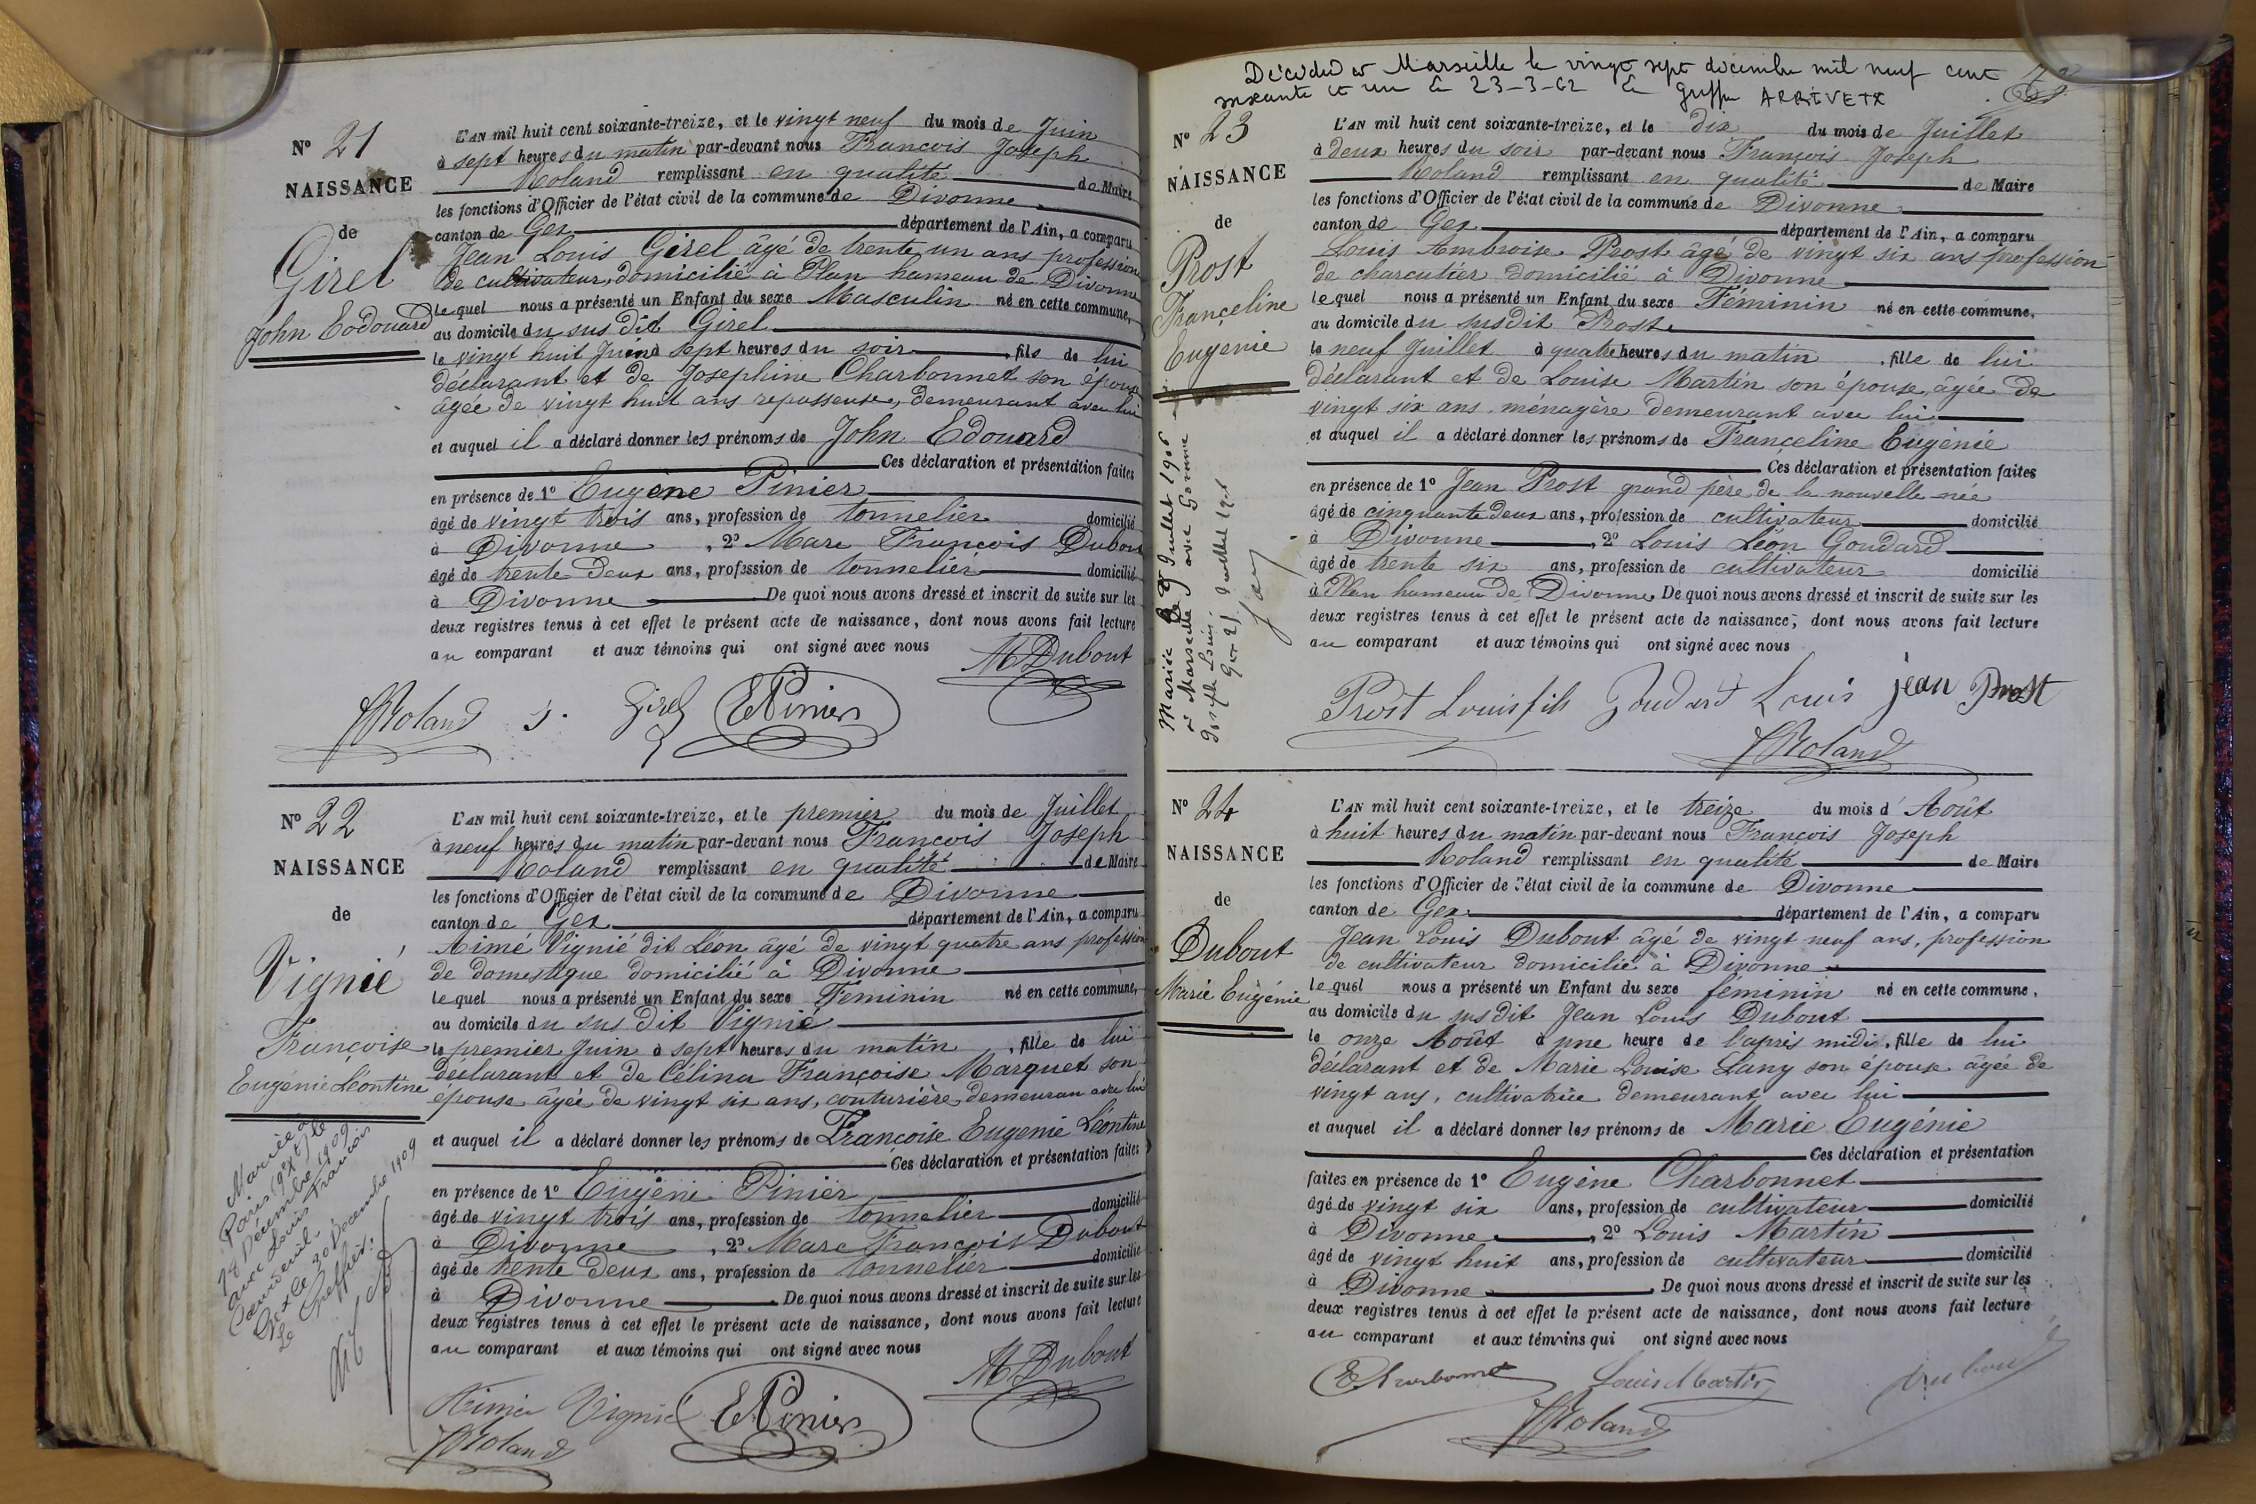 N° 21
NAISSANCE
de
Girel
John Eodouard
L'AN mil huit cent soixante-treize, et le vingt neuf du mois de Juin
à sept heures du matin par-devant nous François Joseph
Roland remplissant en qualité de Maire
les fonctions d'Officier de l'état civil de la commune de Divonne
canton de Gex département de l'Ain, a comparu
Jean Louis Girel âgé de trente un ans profession
de cultivateur, domicilié à Plan hameau de Divonne
lequel nous a présenté un Enfant du sexe Masculin né en cette commune,
au domicile du sus dit Girel
le vingt huit Juin à sept heures du soir, fils de lui
déclarant et de Josephine Charbonnet son épouse
âgée de vingt huit ans repasseuse, demeurant avec lui
et auquel il a déclaré donner les prénoms de John Edouard
Ces déclaration et présentation faites
en présence de 1° Eugène Pinier
âgé de vingt trois ans, profession de tonnelier domicilié
à Divonne, 2° Marc François Dubout
âgé de trente deux ans, profession de tonnelier domicilié
à Divonne De quoi nous avons dressé et inscrit de suite sur les
deux registres tenus à cet effet le présent acte de naissance, dont nous avons fait lecture
au comparant et aux témoins qui ont signé avec nous
M Dubout
Roland J. Girel E Pinier
N° 22
NAISSANCE
de
Vignié
Françoise
Eugénie Léontine
Mariée à
Paris (9e Xt) le
18 Décembre 1909
avec Louis François
Gex le 30 Décembre 1909
Le Greffier:
L'AN mil huit cent soixante-treize, et le premier du mois de Juillet
à neuf heures du matin par-devant nous François Joseph
Roland remplissant en qualité de Maire
les fonctions d'Officier de l'état civil de la commune de Divonne
canton de Gex département de l'Ain, a comparu
Aimé Vignié dit Léon âgé de vingt quatre ans profession
de domestique domicilié à Divonne
lequel nous a présenté un Enfant du sexe Feminin né en cette commune,
au domicile du sus dit Vignié
le premier Juin à sept heures du matin, fille de lui
déclarant et de Célina Françoise Marquet son
épouse âgée de vingt six ans, couturière demeuran avec lui
et auquel il a déclaré donner les prénoms de Françoise Eugenie Léontine
Ces déclaration et présentation faites
en présence de 1° Eugène Pinier
âgé de vingt trois ans, profession de tonnelier domicilié
à Divonne, 2° Marc François Dubout
âgé de trente deux ans, profession de tonnelier domicilié
à Divonne De quoi nous avons dressé et inscrit de suite sur les
deux registres tenus à cet effet le présent acte de naissance, dont nous avons fait lecture
au comparant et aux témoins qui ont signé avec nous
M Dubout
Aimé Vignié E Pinier
Roland
Décédée à Marseille le vingt sept décembre mil neuf cent
soixante et un le 23-3-62 Le greffier
N° 23
NAISSANCE
de
Prost
Françeline
Eugenie
Mariée le 7 Juillet 1906
à Marseille avec
Joseph Louis.
Gex 21 Juillet
L'AN mil huit cent soixante-treize, et le dix du mois de Juillet
à deux heures du soir par-devant nous François Joseph
Roland remplissant en qualité de Maire
les fonctions d'Officier de l'état civil de la commune de Divonne
canton de Gex département de l'Ain, a comparu
Louis Ambroise Prost âgé de vingt six ans profession
de charcutier domicilié à Divonne
lequel nous a présenté un Enfant du sexe Féminin né en cette commune,
au domicile du susdit Prost
le neuf Juillet à quatre heures du matin, fille de lui
déclarant et de Louise Martin son épouse âgée de
vingt six ans ménagère demeurant avec lui
et auquel il a déclaré donner les prénoms de Franceline Eugénie
Ces déclaration et présentation faites
en présence de 1° Jean Prost grand père de la nouvelle née
âgé de cinquante deux ans, profession de cultivateur domicilié
à Divonne, 2° Louis Léon Goudard
âgé de trente six ans, profession de cultivateur domicilié
à Plan hameau de Divonne De quoi nous avons dressé et inscrit de suite sur les
deux registres tenus à cet effet le présent acte de naissance, dont nous avons fait lecture
au comparant et aux témoins qui ont signé avec nous
Prost Louis fils Goudard Louis jean Prost
Roland
N° 24
NAISSANCE
de
Dubout
Marie Eugénie
L'AN mil huit cent soixante-treize, et le treize du mois d'Août
à huit heures du matin par-devant nous François Joseph
Roland remplissant en qualité de Maire
les fonctions d'Officier de l'état civil de la commune de Divonne
canton de Gex département de l'Ain, a comparu
Jean Louis Dubout âgé de vingt neuf ans, profession
de cultivateur domicilié à Divonne
lequel nous a présenté un Enfant du sexe féminin né en cette commune,
au domicile du susdit Jean Louis Dubout
le onze Août à une heure de l'après midi, fille de lui
déclarant et de Marie Louise Lany son épouse âgée de
vingt ans, cultivatrice demeurant avec lui
et auquel il a déclaré donner les prénoms de Marie Eugénie
Ces déclaration et présentation
faites en présence de 1° Eugène Charbonnet
âgé de vingt six ans, profession de cultivateur domicilié
à Divonne, 2° Louis Martin
âgé de vingt huit ans, profession de cultivateur domicilié
à Divonne. De quoi nous avons dressé et inscrit de suite sur les
deux registres tenus à cet effet le présent acte de naissance, dont nous avons fait lecture
au comparant et aux témoins qui ont signé avec nous
E Charbonnet Louis Martin Dubout
Roland